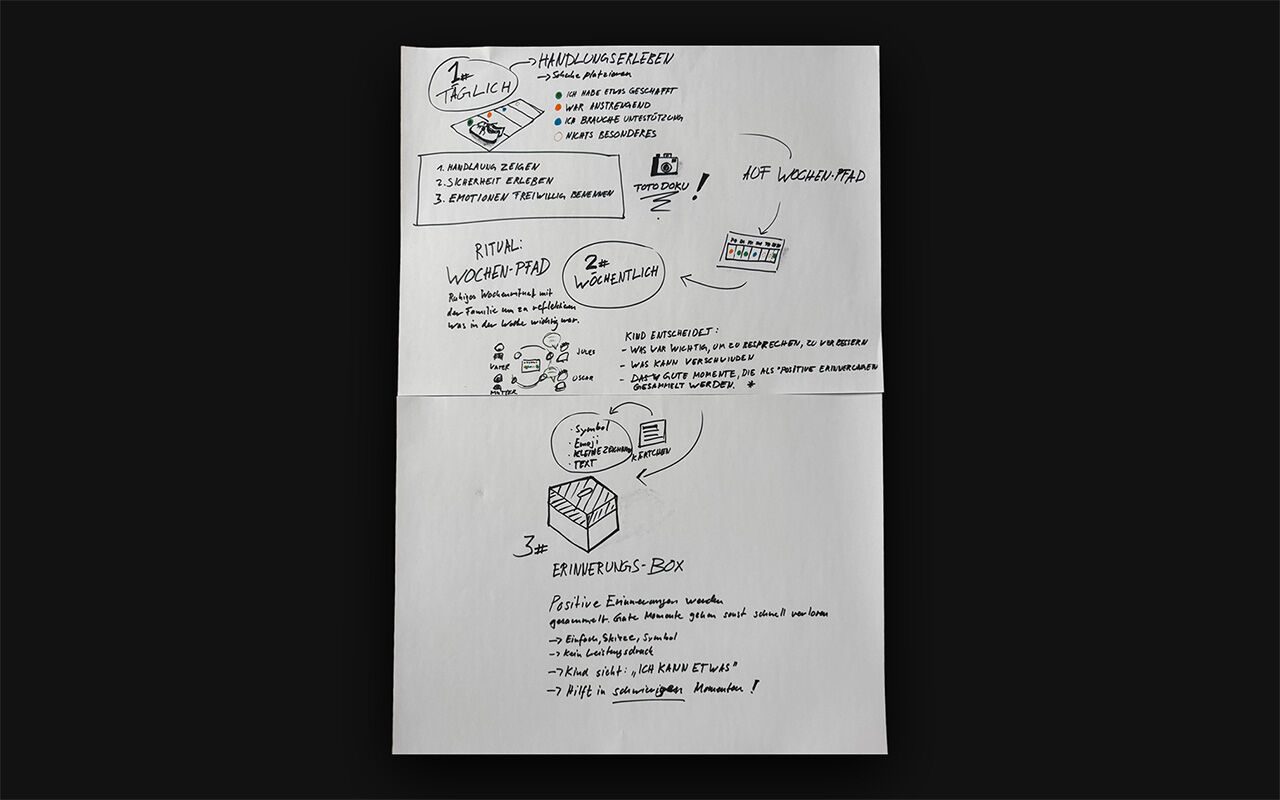 1#
TÄGLICH
HANDLUNGSERLEBEN
→ Schuhe platzieren
ICH HABE ETWAS GESCHAFFT
WAR ANSTRENGEND
ICH BRAUCHE UNTESTÜTZUNG
NICHTS BESONDERES
1. HANDLAUNG ZEIGEN
2. SICHERHEIT ERLEBEN
3. EMOTIONEN FREIWILLIG BENENNEN
TOTODOKU!
AUF WOCHEN-PFAD
RITUAL:
WOCHEN-PFAD
Ruhiges Wochenritual mit
der Familie um zu reflektieren
was in der Woche wichtig war.
2#
WÖCHENTLICH
VATER
MUTTER
JULES
OSCAR
KIND ENTSCHEIDET:
- WAS WAR WICHTIG, UM ZU BESPRECHEN, ZU VERBESSERN
- WAS KANN VERSCHWINDEN
- GUTE MOMENTE, DIE ALS "POSITIVE ERINNERUNGEN
GESAMMELT WERDEN. *
· Symbol
· Emoji
· KLEINE ZEICHNUNG
· TEXT
KÄRTCHEN
3#
ERINNERUNGS-BOX
Positive Erinnerungen werden
gesammelt. Gute Momente gehen sonst schnell verloren
→ Einfach, Skizze, Symbol
→ Kein Leistungsdruck
→ Kind sieht: „ICH KANN ETWAS"
→ Hilft in schwierigen Momenten!